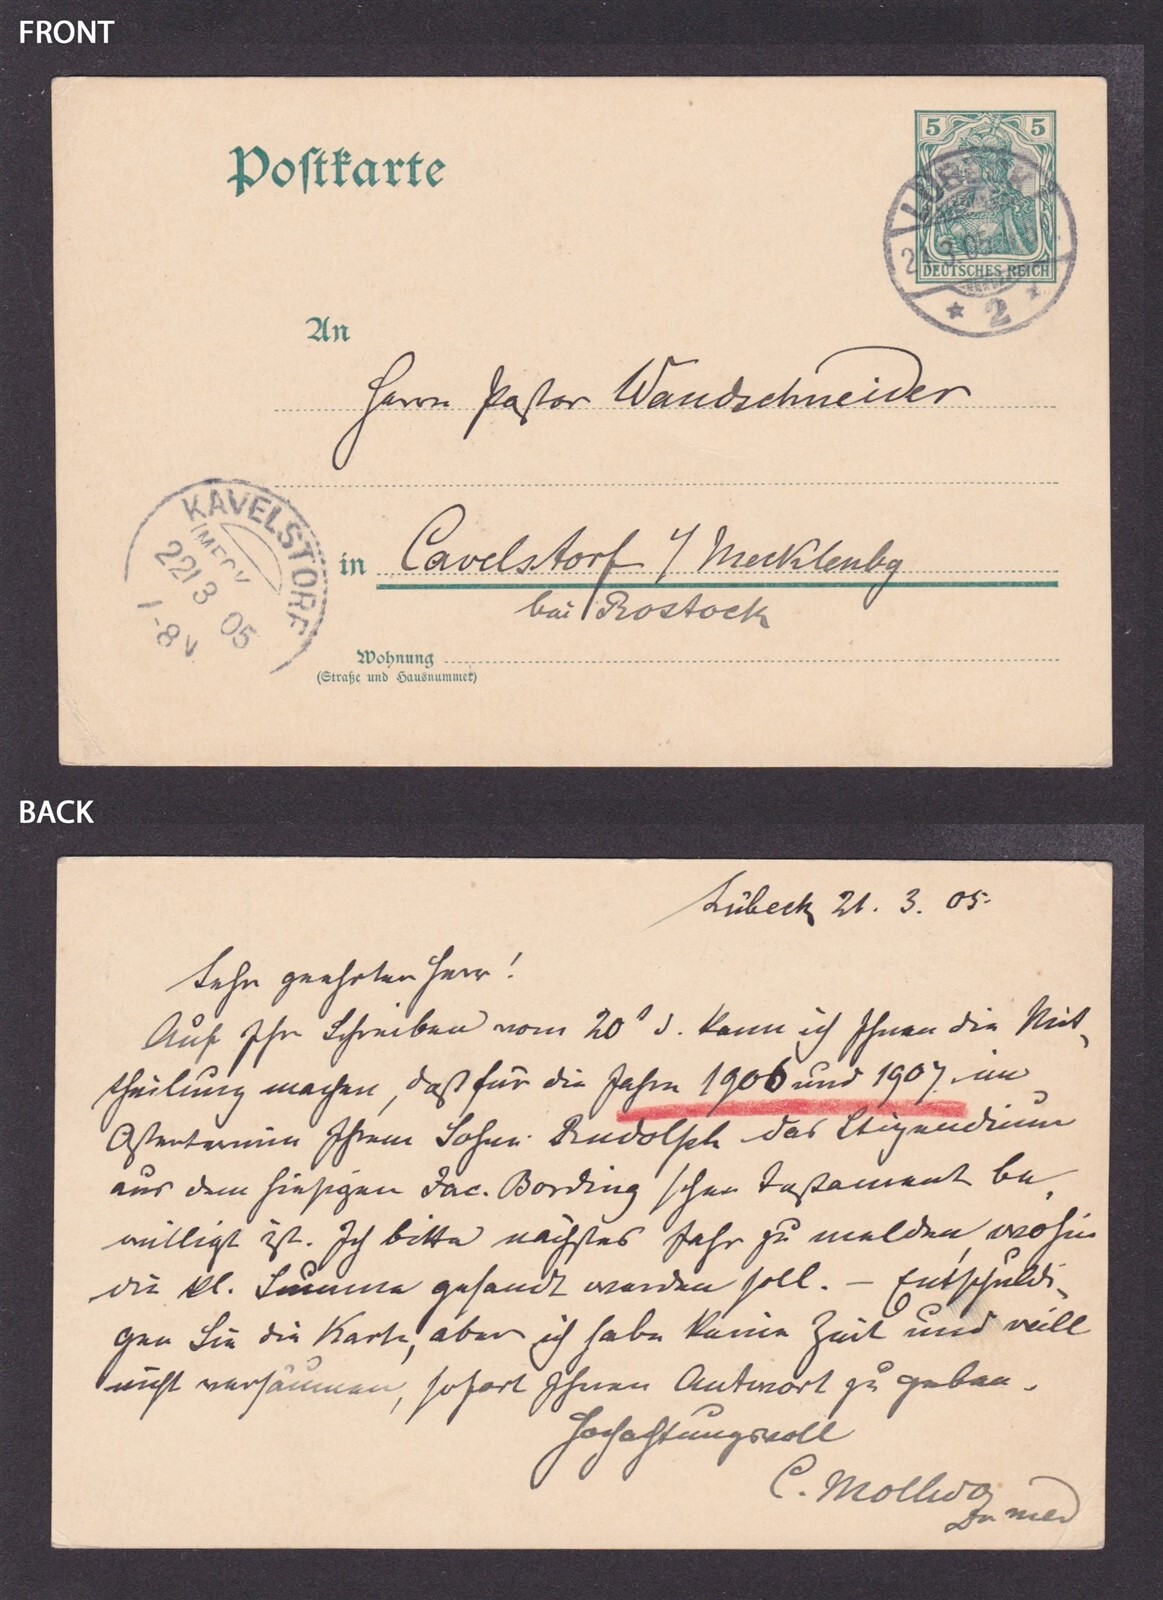 FRONT
Postkarte
5 5
LÜBECK
21.3.05
DEUTSCHES REICH
* 2 *
An
Herrn Pastor Wandschneider
KAVELSTORF
(MECK
22 3 05
1-8V
in Cavelstorf i/ Mecklenbg
bei Rostock
Wohnung
(Straße und Hausnummer)
BACK
Lübeck 21. 3. 05.
Sehr geehrter Herr!
Auf Ihr Schreiben vom 20 d. kann ich Ihnen die Mit-
theilung machen, daß für die Jahre 1906 und 1907 im
Ostertermin Ihrem Sohne Rudolph das Stipendium
aus dem hiesigen Jac. Bording'schen Testament be-
willigt ist. Ich bitte nächstes Jahr zu melden, wohin
die kl. Summe gesandt werden soll. – Entschuldi-
gen Sie die Karte, aber ich habe keine Zeit und will
nicht versäumen, sofort Ihnen Antwort zu geben.
Hochachtungsvoll
C. Mollwo
Dr med